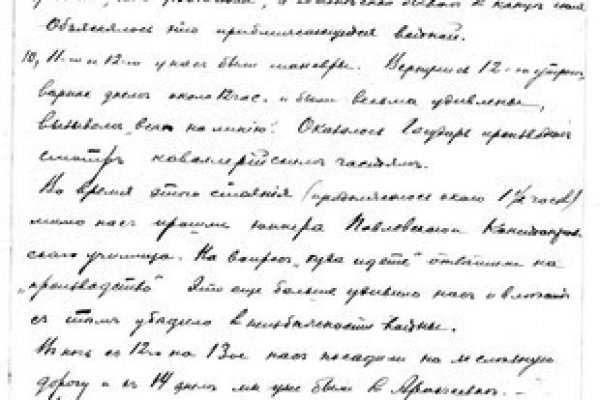 Объяснялось это приближающейся войной.
10, 11-го и 12-го у нас были маневры. Вернулись 12-го утром,
вернее днем около 12 час. и были весьма удивлены,
вызовом „всех на линию“. Оказалось Государь производил
смотръ кавалерийским частям.
Во время этого стояния (продолжалось около 1½ часов)
мимо нас прошли юнкера Павловского
ского училища. На вопрос „куда идете“ отвечали на
„производство“ Это еще больше удивило нас и
с этим убедило в неизбежности войны.
В ночь с 12-го на 13-ое нас посадили на железную
дорогу и 14 днем мы уже были в